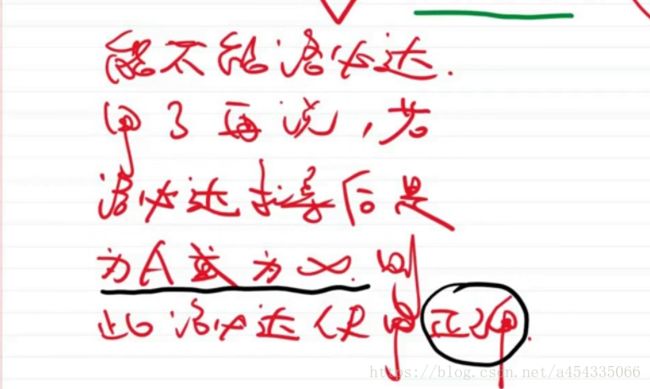 能不能洛必达.
用了再说，若
洛必达求导后是
为A或为∞.则
此洛必达使用正确.
https://blog.csdn.net/a454335066